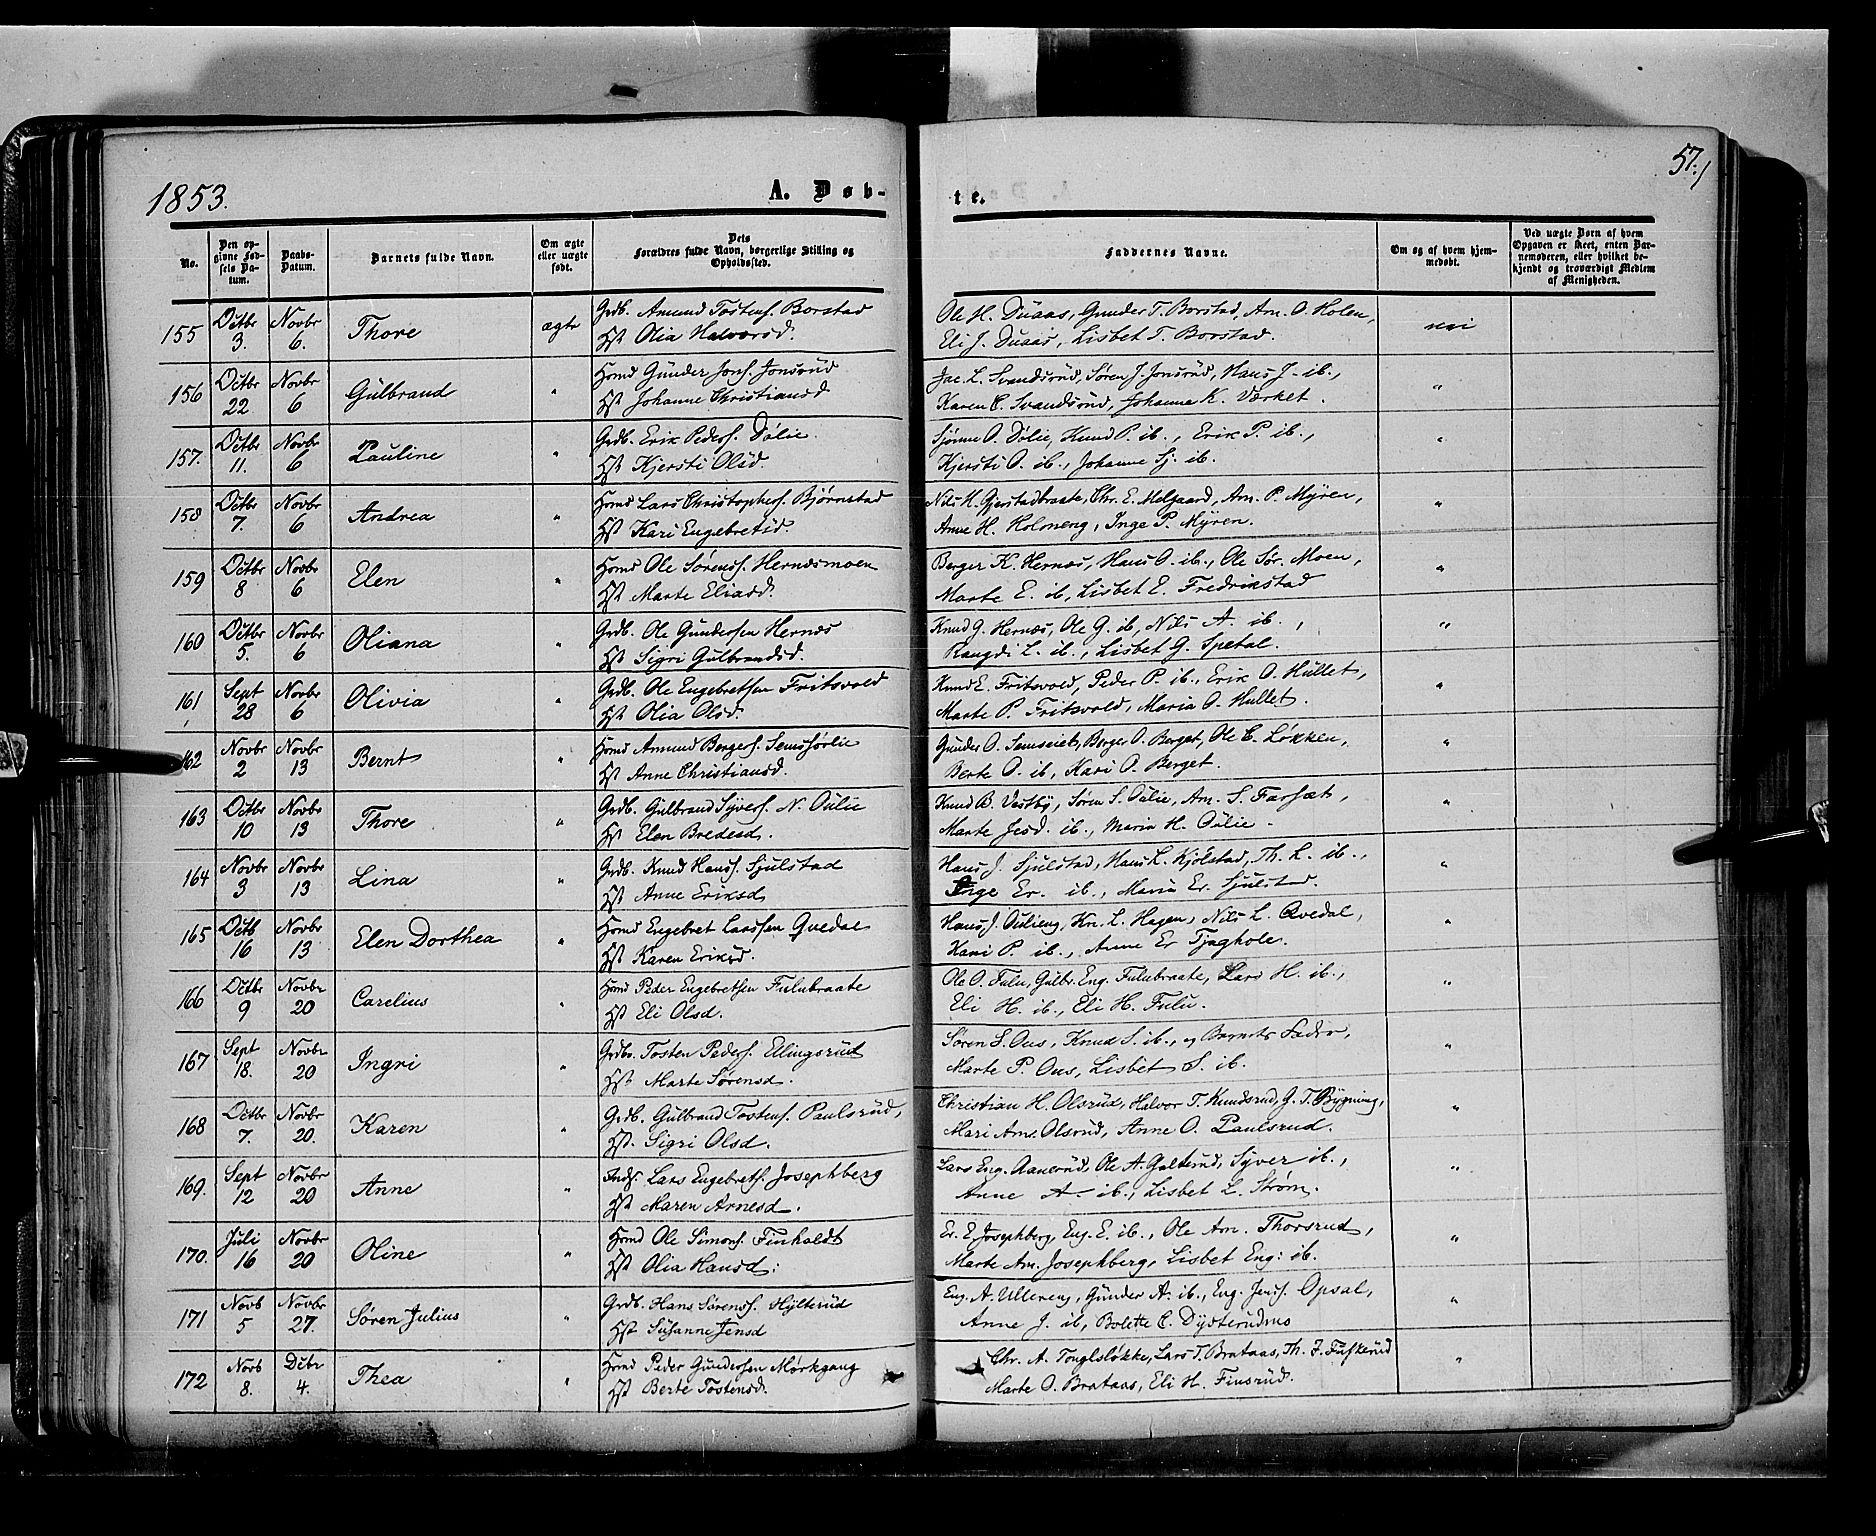 1853.
A. Døb-
te.
57.
No.
Den op-
givne Fød-
sels Da-
tum.
Daabs-
Datum.
Barnets fulde Navn.
Om ægte
eller uægte
født.
Dets
Forældres fulde Navn, borgerlige Stilling og
Opholdssted.
Faddernes Navne.
Om og af hvem hjem-
medøbt.
Ved uægte Børn af hvem
Opgaven er skeet, enten Bar-
nemoderen, eller hvilket be-
kjendt og troværdigt Medlem
af Menigheden.
155 Octbr 3. Novbr 6. Thore ægte Grdb. Amund Tostens. Borstad
Hst Olia Halvorsd.
Ole H. Duaas, Gunder T. Borstad, Am. O. Holen,
Eli J. Duaas, Lisbet T. Borstad.
nei
156 Octbr 22. Novbr 6 Gulbrand " Hmd Gunder Jons. Jonsrud
Hst Johanne Christiansd
Jac. L. Svandsrud, Søren J. Jonsrud, Hans J. ib.,
Karen C. Svandsrud, Johanna K. Værket.
"
157. Octbr 11. Novbr 6 Pauline " Grdb. Erik Peders. Dølie.
Hst Kjersti Olsd.
Sjønne O. Dølie, Knud P. ib., Erik P. ib.,
Kjersti O. ib., Johanne Sj. ib.
"
158 Octbr 7. Novbr 6 Andrea " Hmd Lars Christophers. Bjørnstad
Hst Kari Engebretsd.
Nils H. Gjerstadbraate, Chr. E. Melgaard, Am. P. Myren,
Anne H. Holoneng, Inge P. Myren.
"
159 Octbr 8. Novbr 6 Elen " Hmd Ole Sørens. Hernæsmoen
Hst Marte Eliasd.
Berger K. Hernæs, Hans O. ib., Ole Sør. Moen,
Marte E. ib, Lisbet E. Fredrikstad
"
160 Octbr 5. Novbr 6 Oliana " Grdb. Ole Gundersen Hernæs
Hst Sigri Gulbrandsd.
Knud G. Hernæs, Ole G. ib, Nils A. ib.,
Rangdi L. ib., Lisbet G. Spetal.
"
161 Sept 28 Novbr 6 Olivia " Grdb. Ole Engebretsen Fritsvold
Hst Olia Olsd.
Knud E. Fritsvold, Peder P. ib., Erik O. Hullet,
Marte P. Fritsvold, Maria O. Hullet.
"
162 Novbr 2 Novbr 13 Bernt " Hmd Amund Bergers.
Hst Anne Christiansd.
Gunder O. Semseiet, Berger O. Berget, Ole E. Løkken,
Berte O. ib, Kari O. Berget.
"
163 Octbr 10 Novbr 13 Thore " Grdb. Gulbrand Syvers. N. Oulie
Hst Elen Bredesd.
Knud B. Vestby, Søren S. Oulie, Am. S. Farsæt,
Marte Jesd. ib., Maria H. Oulie.
"
164 Novbr 3 Novbr 13 Lina " Grdb. Knud Hans. Sjulstad
Hst Anne Eriksd
Hans J. Sjulstad, Hans L. Kjølstad, Th. L. ib.,
Inge Er. ib., Maria Er. Sjulstad.
"
165 Octb 16 Novbr 13 Elen Dorthea " Hmd Engebret Larssen Qvedal
Hst Karen Eriksd.
Hans J. Oulieng, Kn. L. Hagen, Nils L. Qvedal,
Kari P. ib., Anne Er Tjaghole.
"
166 Octbr 9 Novbr 20 Carelius " Hmd Peder Engebretsen Fulubraate
Hst Eli Olsd.
Ole O. Fulu, Gulbr. Eng. Fulubraate, Lars H. ib.,
Eli H. ib., Eli H. Fulu.
"
167 Sept 18. Novbr 20 Ingri " Grdbr. Tosten Peders. Ellingsrud
Hst Marte Sørensd.
Søren S. Ous, Knud S. ib., og Barnets Fader,
Marte P. Ous, Lisbet S. ib.
"
168 Octbr 7. Novbr 20. Karen " Grdb. Gulbrand Tostens. Paulsrud,
Hst. Sigri Olsd.
Christian H. Olsrud, Halvor T. Knudsrud, G. T. Bygning,
Mari Am. Olsrud, Anne O. Paulsrud.
"
169. Sept 12 Novbr 20 Anne " Inds. Lars Engebrets. Josephberg
Hst Maren Arnesd.
Lars Eng. Aanerud, Ole A. Galterud, Syver ib.,
Anne A ib., Lisbet L. Strøm.
"
170. Juli 16 Novbr 20 Oline " Hmd Ole Simons. Finholdt
Hst Olia Hansd.
Er. E. Josephberg, Eng. E. ib., Ole Am. Thorsrud,
Marte Am. Josephberg, Lisbet Eng: ib.
"
171 Novb 5 Novbr 27. Søren Julius " Grdb. Hans Sørens. Hylterud
Hst Susanne Jensd
Eng. A. Ullereng, Gunder A. ib., Eng. Jens. Opsal,
Anne J. ib, Bolette C. Dysterudnes
"
172 Novb 8. Dcbr 4. Thea " Hmd Peder Gundersen Mørkgang
Hst Berte Tostensd.
Chr. A. Tonglsløkke, Lars T. Brataas, Th. J. Fuskerud
Marte O. Brataas, Eli H. Finsrud.
"